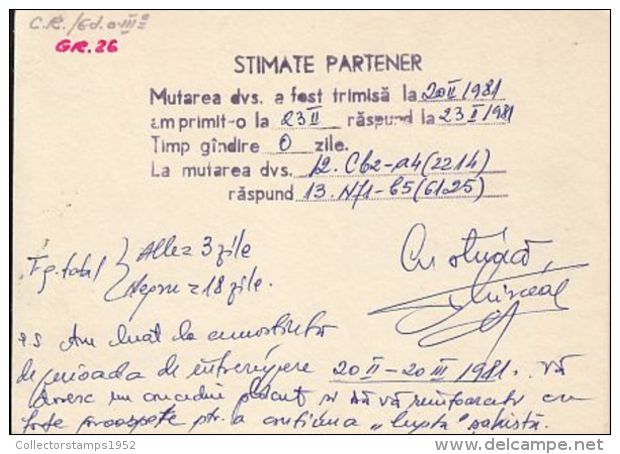 C.R./Ed. a III a
GR. 26
STIMATE PARTENER
Mutarea dvs. a fost trimisă la 20 II 1981
am primit-o la 23 II răspund la 23 II 1981
Timp gîndire 0 zile.
La mutarea dvs. 12. Cb2-a4 (2214)
răspund 13. Nf1-b5 (6125)
Tg. total Albe = 3 zile
Negru = 18 zile.
Cu stimă,
P.S Am luat la cunoștință
de perioada de întrerupere 20 II - 20 III 1981. Vă
doresc un concediu plăcut și să vă reîntoarceți cu
forțe proaspete ptr. a continua "lupta" șahistă.
Collectorstamps1952
delcampe.net